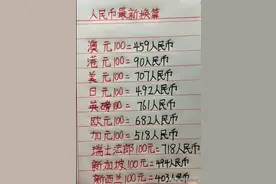 人民币最新换算
澳元100=459人民币
港元100=90人民币
美元100=707人民币
日元100=492人民币
英磅100=761人民币
欧元100=682人民币
加元100=518人民币
瑞士法郎100元=718人民币
新加坡100元=494人民币
新西兰100元=403人民币